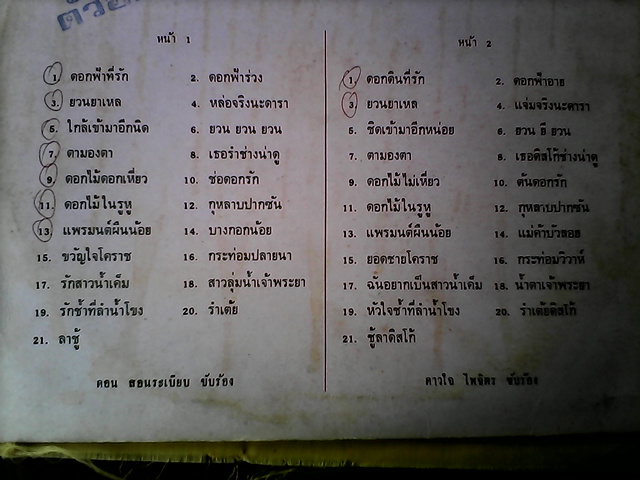 ตัวอ
หน้า 1
1 ดอกฟ้าที่รัก 2. ดอกฟ้าร่วง
3. ยวนยาเหล 4. หล่อจริงนะดารา
5. ใกล้เข้ามาอีกนิด 6. ยวน ยวน ยวน
7. ตามองตา 8. เธอรำช่างน่าดู
9. ดอกไม้ดอกเหี่ยว 10. ช่อดอกรัก
11. ดอกไม้ในรูหู 12. กุหลาบปากซัน
13 แพรมนต์ผืนน้อย 14. บางกอกน้อย
15. ขวัญใจโคราช 16. กระท่อมปลายนา
17. รักสาวน้ำเค็ม 18. สาวลุ่มน้ำเจ้าพระยา
19. รักซ้ำที่ลำน้ำโขง 20. รำเต้ย
21. ลาชู้
ดอน สอนระเบียบ ขับร้อง
หน้า 2
1. ดอกดินที่รัก 2. ดอกฟ้าอาย
3 ยวนยาเหล 4. แจ่มจริงนะดารา
5. ชิดเข้ามาอีกหน่อย 6. ยวน ยี ยวน
7. ตามองตา 8. เธอดิสโก้ช่างน่าดู
9. ดอกไม้ไม่เหี่ยว 10. ต้นดอกรัก
11. ดอกไม้ในรูหู 12. กุหลาบปากซัน
13. แพรมนต์ผืนน้อย 14. แม่ค้าบัวลอย
15. ยอดชายโคราช 16. กระท่อมวิวาห์
17. ฉันอยากเป็นสาวน้ำเค็ม 18. น้ำตาเจ้าพระยา
19. หัวใจช้ำที่ลำน้ำโขง 20. รำเต้ยดิสโก้
21. ชู้ลาดิสโก้
ดาวใจ ไพจิตร ขับร้อง